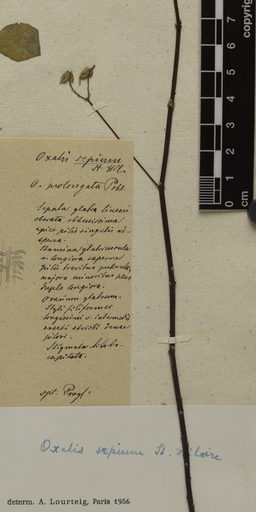 Oxalis sepium
St Hil.
O. prolongata Pohl.
Sepala glabra lineari
obovata obtusissima
apice pilis singulis ad-
spersa.
Stamina glabriuscula
longiora superne
pilis brevibus
majora minoribus plus
duplo longiora.
Ovarium glabrum.
Styli filiformes
longissimi v. intermedii
erecti stricti dense
pilosi.
Stigmata
capitata.
Progl.
Oxalis sepium St. Hilaire
determ. A. Lourteig, Paris 1956
5
6
7
copyright reserved